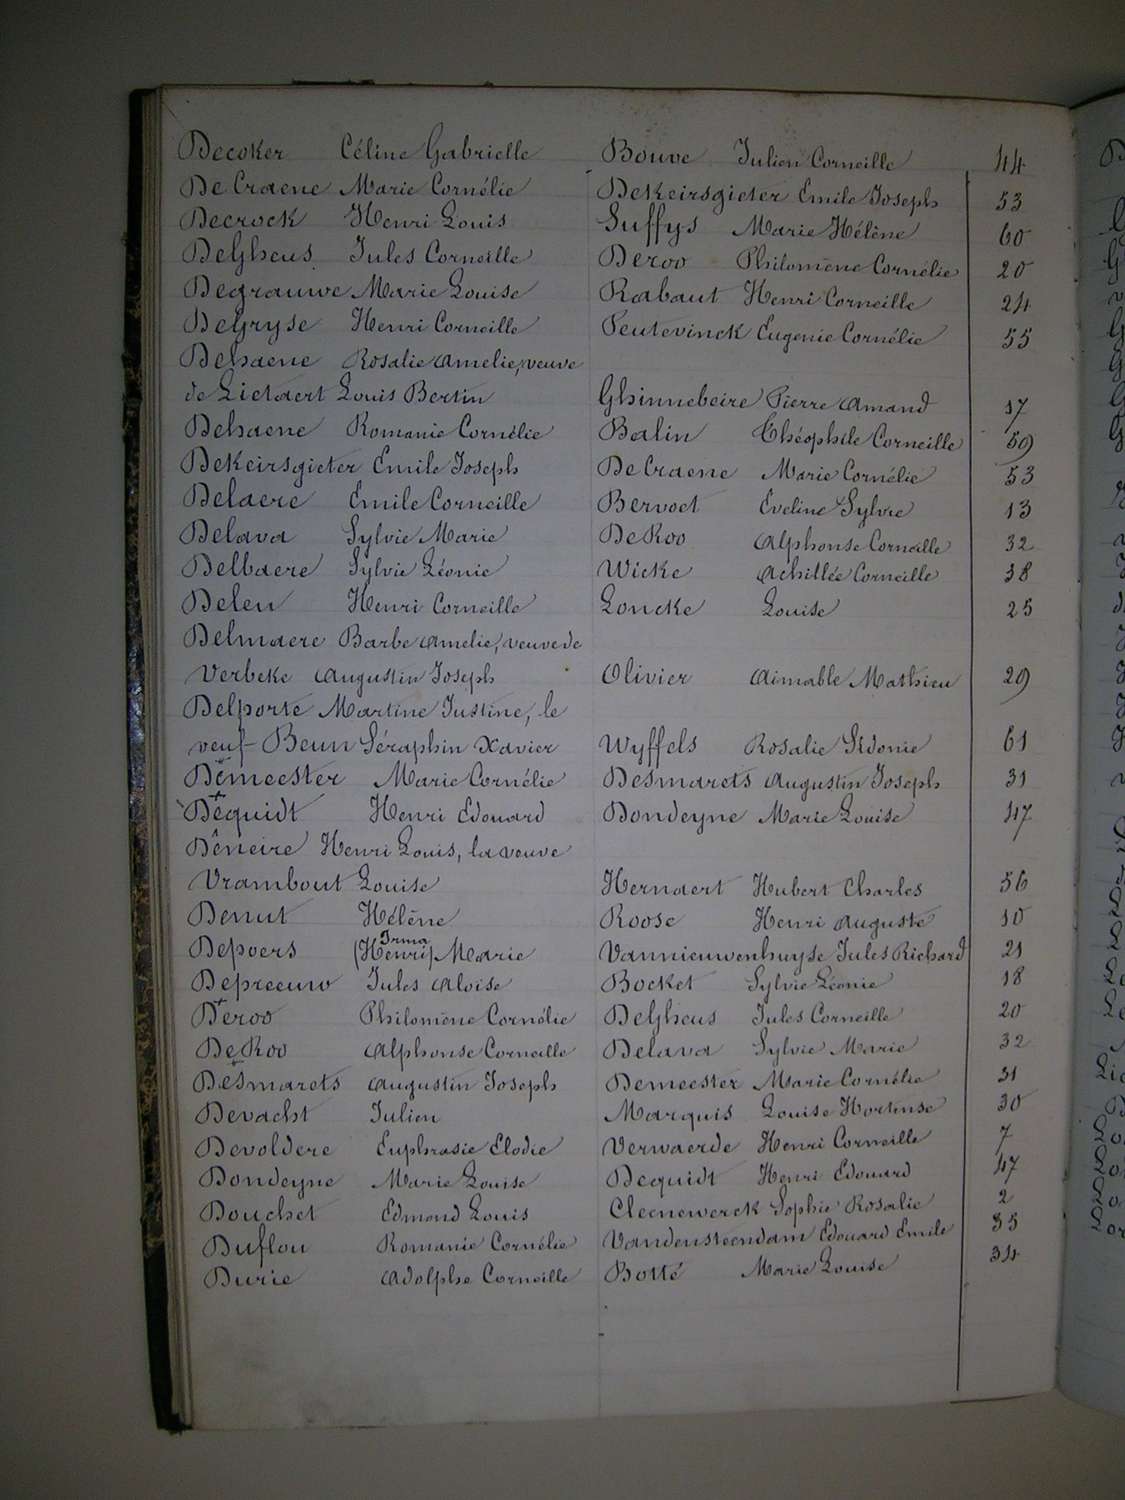 Decoker Céline Gabrielle Bouve Julien Corneille 44
De Craene Marie Cornélie Dekeirsgieter Emile Joseph 53
Decrock Henri Louis Suffys Marie Hélène 60
Delgheus Jules Corneille Deroo Philomène Cornélie 20
Degrauwe Marie Louise Rabaut Henri Corneille 24
DeGryse Henri Corneille Peutevinck Eugenie Cornélie 55
Dehaene Rosalie Amelie, veuve
de Lietaert Louis Bertin Ghinnebeire Pierre Amand 17
Dehaene Romanie Cornélie Balin Théophile Corneille 59
Dekeirsgieter Emile Joseph De Craene Marie Cornélie 53
Delaere Emile Corneille Bervoet Eveline Sylvie 13
Delava Sylvie Marie DeRoo Alphonse Corneille 32
Delbaere Sylvie Léonie Wicke Achillée Corneille 38
Deleu Henri Corneille Loncke Louise 25
Delmaere Barbe Amelie, veuve de
Verbeke Augustin Joseph Olivier Aimable Mathieu 29
Delporte Martine Justine, le
veuf Beun Séraphin Xavier Wyffels Rosalie Sidonie 61
Demeester Marie Cornélie Desmarets Augustin Joseph 31
Dequidt Henri Edouard Dondeyne Marie Louise 47
Deneire Henri Louis, la veuve
Vrambout Louise Hernaert Hubert Charles 56
Denut Hélène Roose Henri Auguste 10
Irma
Depoers (Henri) Marie Vannieuwenhuyse Jules Richard 21
Depreeuw Jules Aloise Bocket Sylvie Léonie 18
Deroo Philomène Cornélie Delgheus Jules Corneille 20
DeRoo Alphonse Corneille Delava Sylvie Marie 32
Desmarets Augustin Joseph Demeester Marie Cornélie 31
Devacht Julien Marquis Louise Hortense 30
Devoldere Euphrasie Elodie Verwaerde Henri Corneille 7
Dondeyne Marie Louise Dequidt Henri Edouard 47
Douchet Edmond Louis Cleenewerck Sophie Rosalie 2
Duflou Romanie Cornélie Vandensteendam Edouard Emile 35
Durie Adolphe Corneille Botté Marie Louise 34